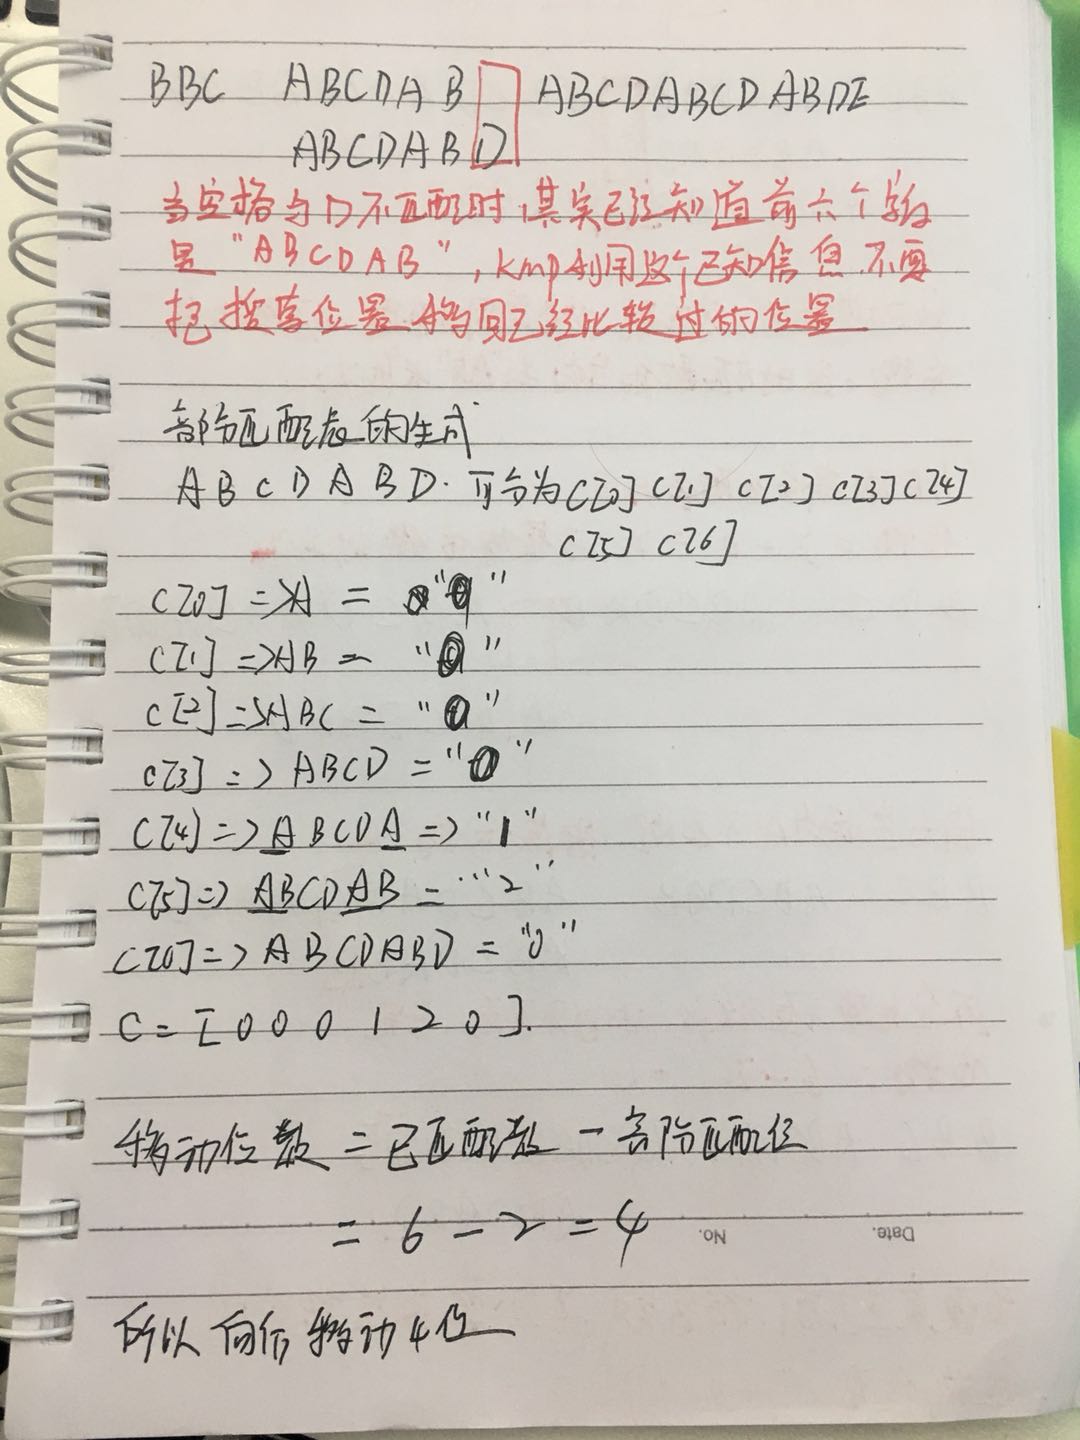 BBC ABCDAB ABCDABCDABDE
ABCDABD
当空格与D不匹配时,其实已经知道前六个字符
是"ABCDAB",kmp利用这个已知信息.不要
把搜索位置移回已经比较过的位置
部份匹配表的生成
ABCDABD.可分为C[0] C[1] C[2] C[3] C[4]
C[5] C[6]
C[0] =>A = "0"
C[1] =>AB = "0"
C[2] =>ABC = "0"
C[3] => ABCD = "0"
C[4] => ABCDA => "1"
C[5] => ABCDAB = "2"
C[0] => ABCDABD = "0"
C = [0 0 0 1 2 0].
移动位数 = 已匹配数 - 部份匹配位
= 6 - 2 = 4
No. Date.
所以向后移动4位